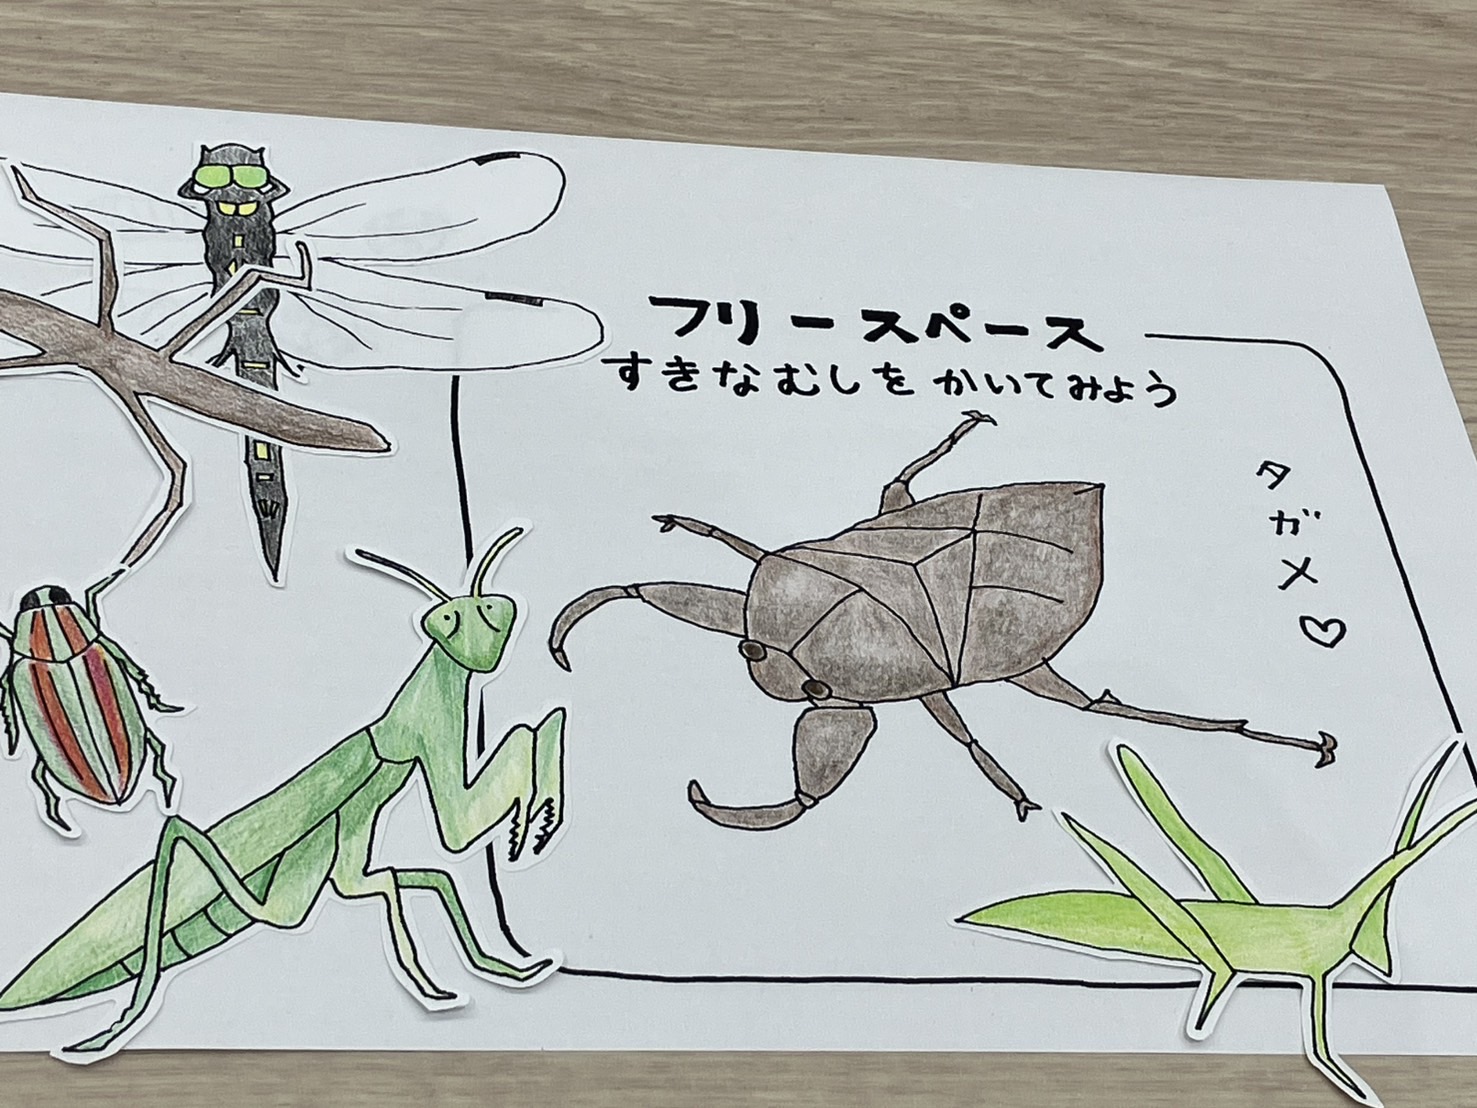 フリースペース
すきなむしをかいてみよう
タガメ♡